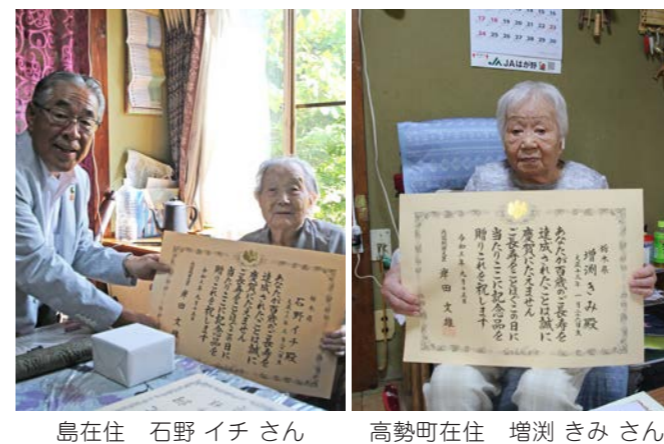 JAはが野
栃木県
石野イチ殿
あなたが百歳のご長寿を
達成されたことは誠に
慶賀にたえません
ご長寿をことほぐこの日に
当たりここに記念品を
贈りこれを祝します
栃木県
増渕きみ殿
あなたが百歳のご長寿を
達成されたことは誠に
慶賀にたえません
ご長寿をことほぐこの日に
当たりここに記念品を
贈りこれを祝します
内閣総理大臣 岸田文雄
島在住 石野 イチ さん
高勢町在住 増渕 きみ さん